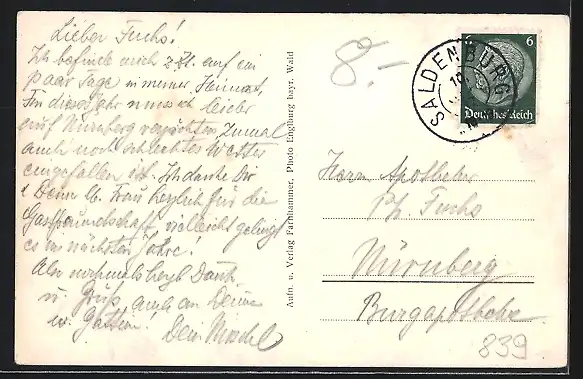 Lieber Fuchs!
Ich befinde mich z. Zt. auf ein
paar Tage in meiner Heimat,
Für dieses Jahr muss ich leider
auf Nürnberg verzichten, zumal
auch noch schlechtes Wetter
eingefallen ist. Ich danke Dir
u. Deiner lb. Frau herzlich für die
Gastfreundschaft, vielleicht gelingt
es im nächsten Jahre!
Also nochmals herzl. Dank
u. Gruß auch an Deine
w. Gattin! Dein
Aufn. u. Verlag Farnhammer, Photo Englburg bayr. Wald
8.-
SALDENBURG
6 6
Deutsches Reich
Herrn Apotheker
Ph. Fuchs
Nürnberg
Burgapotheke
839